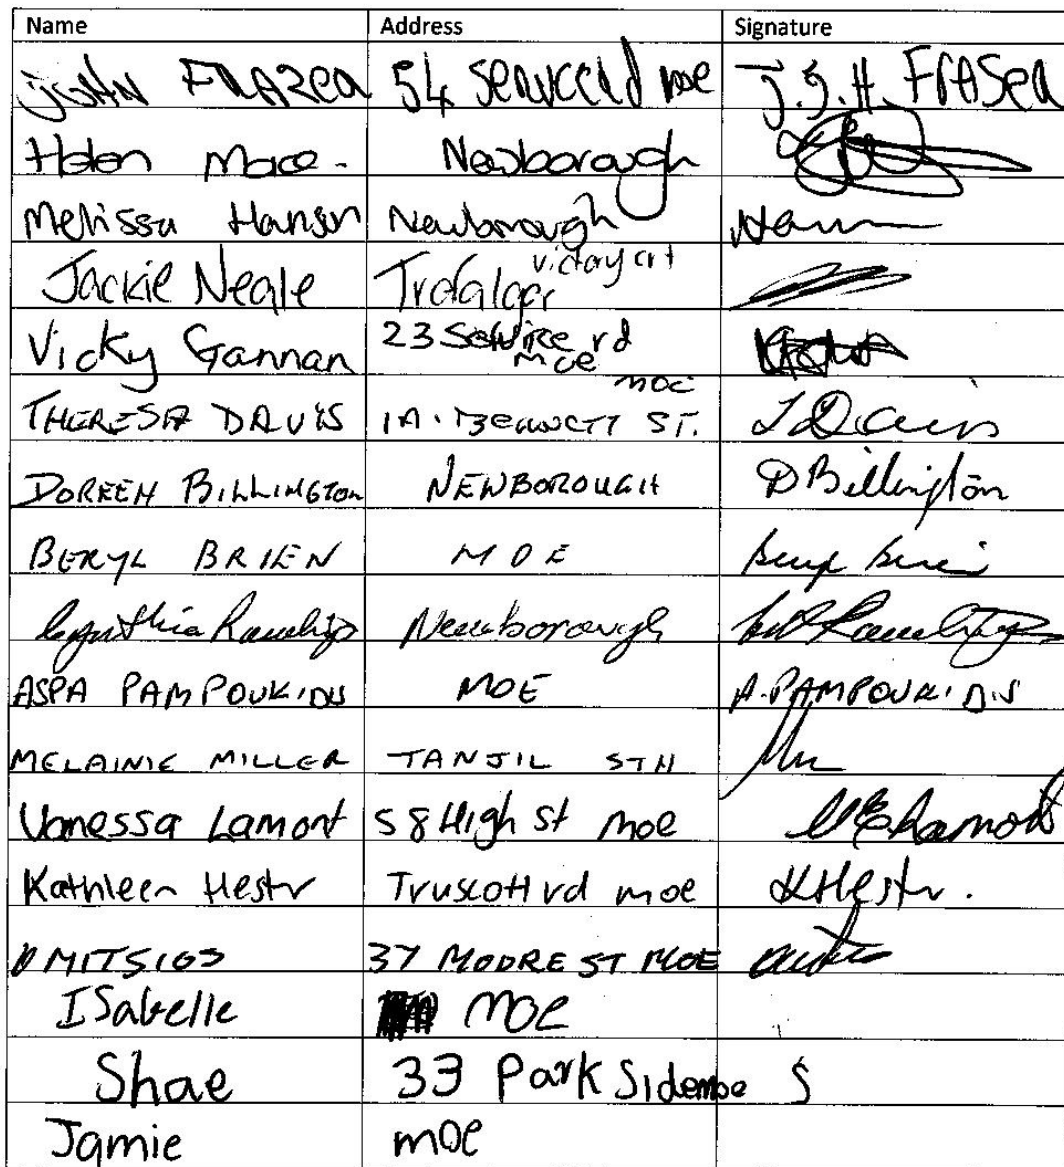 Name Address Signature
JOHN FRAZER 54 Service rd moe J.S.H. FRASER
Helen Mace. Newborough
Melissa Hansen Newborough
Jackie Neale Trafalgar victory crt
Vicky Gannan 23 Service rd moe
THERESA DAVIS 1A. BENNETT ST. moe T Davis
DOREEN BILLINGTON NEWBOROUGH D Billington
BERYL BRIEN MOE Beryl Brien
Cynthia Newborough
ASPA PAMPOUKIDIS MOE A. PAMPOUKIDIS
MELAINIE MILLER TANJIL STH
Vanessa Lamont 58 High St moe VE Lamont
Kathleen Hestr Truscott rd moe KHestr.
D MITSIOS 37 MOORE ST MOE
ISabelle moe
Shae 33 Park Side moe S
Jamie moe